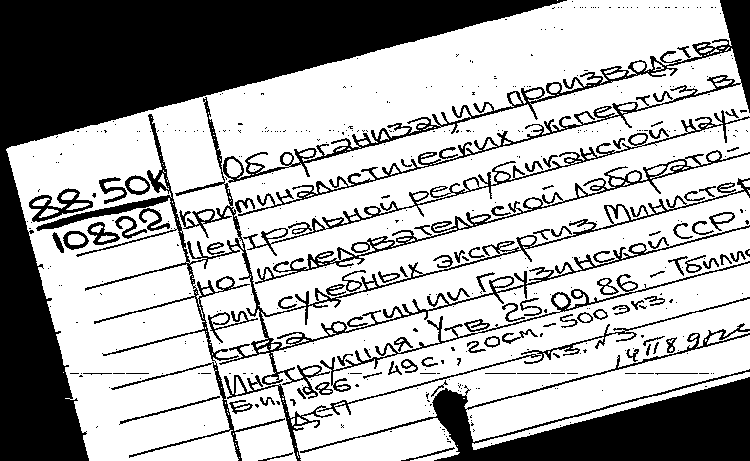 88.50К
10822
Об организации производства
криминалистических экспертиз в
Центральной республиканской науч-
но-исследовательской лаборато-
рии судебных экспертиз Министер
ства юстиции Грузинской ССР:
Инструкция: Утв. 25.09.86. - Тбилис
Б.и., 1986. - 49с.; 20см. - 500 экз.
ДСП экз. №3.